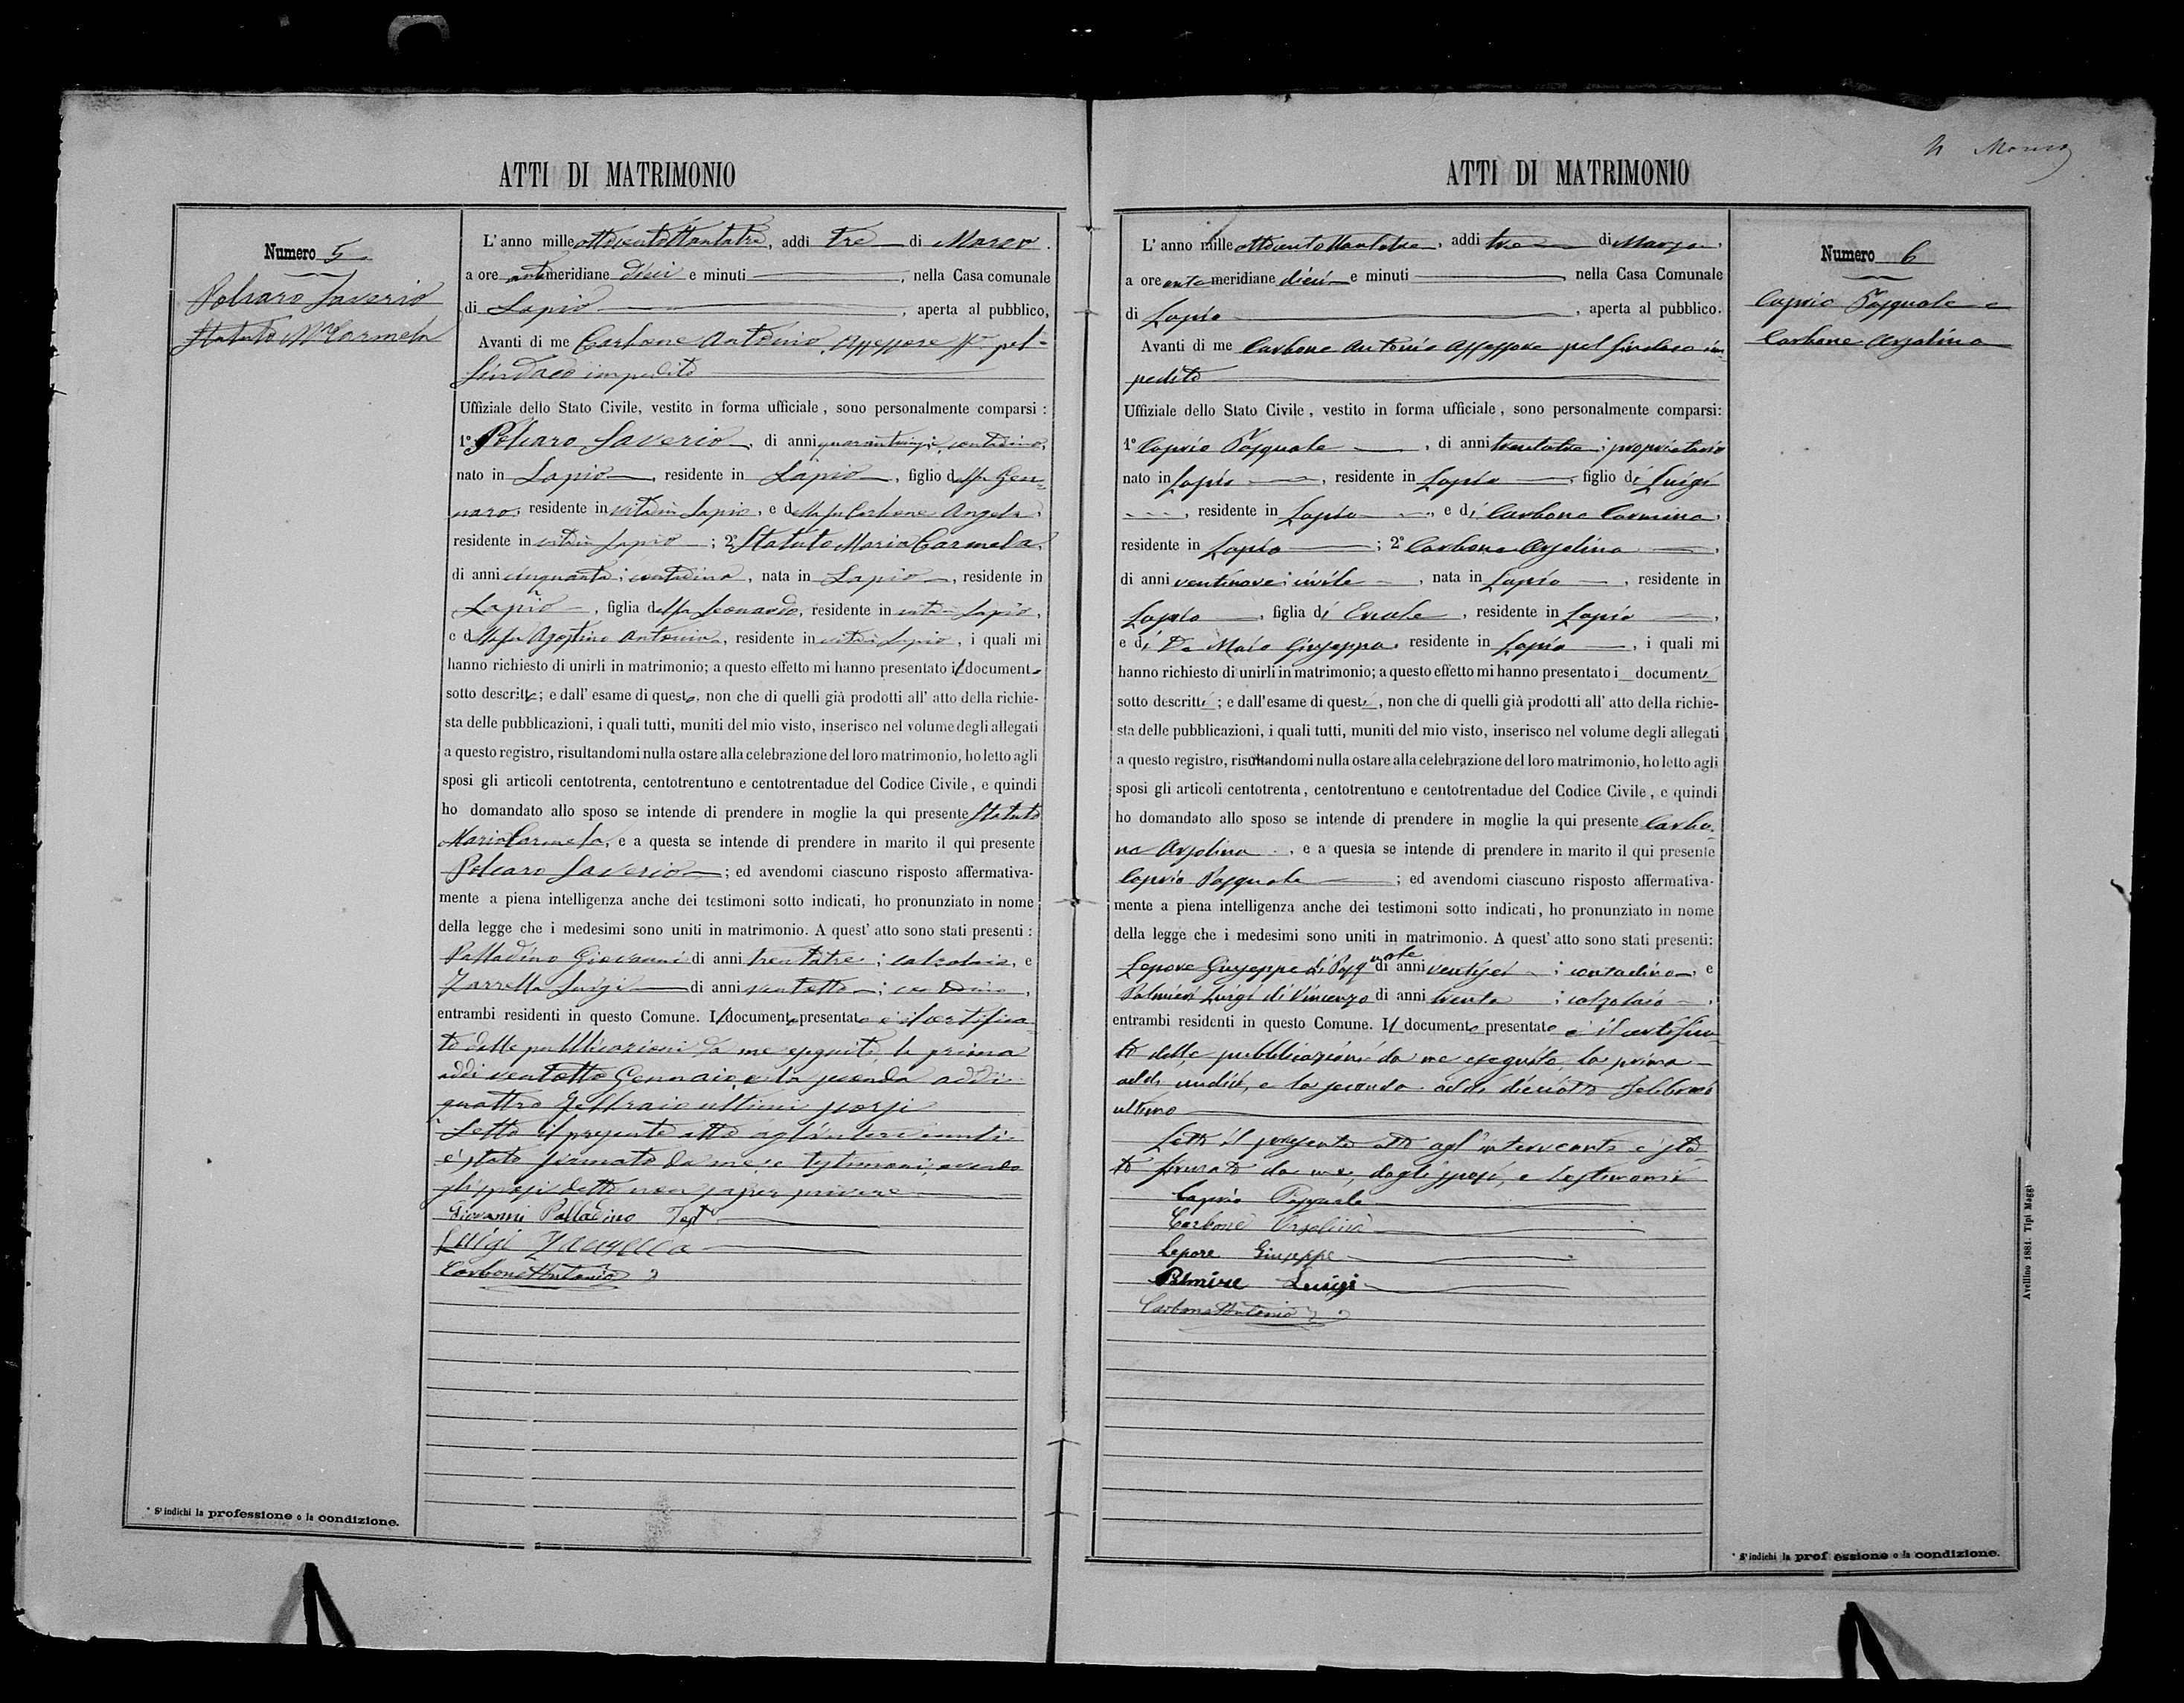 ATTI DI MATRIMONIO
Numero 5
Polcaro Saverio
Statuto Mª Carmela
L'anno milleottocentottantatre, addi tre di Marzo.
a ore antimeridiane dieci e minuti , nella Casa comunale
di Lapio , aperta al pubblico,
Avanti di me Carbone Antonio Assessore pel
Sindaco impedito
Uffiziale dello Stato Civile, vestito in forma ufficiale, sono personalmente comparsi:
1º Polcaro Saverio, di anni contadino,
nato in Lapio, residente in Lapio, figlio del fu Gen-
naro, residente in vita in Lapio, e della fu Carbone Angela,
residente in vita in Lapio; 2º Statuto Maria Carmela,
di anni cinquanta; contadina, nata in Lapio, residente in
Lapio, figlia del fu Leonardo, residente in vita in Lapio,
e della fu Agostino Antonia, residente in vita in Lapio, i quali mi
hanno richiesto di unirli in matrimonio; a questo effetto mi hanno presentato il documento
sotto descritto; e dall'esame di questo, non che di quelli già prodotti all'atto della richie-
sta delle pubblicazioni, i quali tutti, muniti del mio visto, inserisco nel volume degli allegati
a questo registro, risultandomi nulla ostare alla celebrazione del loro matrimonio, ho letto agli
sposi gli articoli centotrenta, centotrentuno e centotrentadue del Codice Civile, e quindi
ho domandato allo sposo se intende di prendere in moglie la qui presente Statuto
Maria Carmela, e a questa se intende di prendere in marito il qui presente
Polcaro Saverio; ed avendomi ciascuno risposto affermativa-
mente a piena intelligenza anche dei testimoni sotto indicati, ho pronunziato in nome
della legge che i medesimi sono uniti in matrimonio. A quest'atto sono stati presenti:
Palladino Giovanni di anni trentatre; calzolaio, e
Zarrella Luigi di anni ventotto; contadino,
entrambi residenti in questo Comune. Il documento presentato è il certifica-
to delle pubblicazioni da me eseguite, la prima
addi ventotto Gennaio, e la seconda addi
quattro Febbraio ultimi scorsi
Letto il presente atto agl'intervenuti
è stato firmato da me, e testimoni, avendo
gli sposi detto non saper scrivere
Giovanni Palladino Test
Luigi Zarrella
Carbone Antonio
* S'indichi la professione o la condizione.
ATTI DI MATRIMONIO
Numero 6
Caprio Pasquale e
Carbone Orsolina
L'anno mille ottocentottantatre, addi tre di Marzo,
a ore antemeridiane dieci e minuti , nella Casa Comunale
di Lapio , aperta al pubblico.
Avanti di me Carbone Antonio Assessore pel Sindaco im
pedito
Uffiziale dello Stato Civile, vestito in forma ufficiale, sono personalmente comparsi:
1º Caprio Pasquale , di anni trentatre; proprietario
nato in Lapio , residente in Lapio , figlio di Luigi
, residente in Lapio , e di Carbone Carmina,
residente in Lapio ; 2º Carbone Orsolina ,
di anni ventinove; civile , nata in Lapio , residente in
Lapio , figlia di Ercole , residente in Lapio ,
e di De Maio Giuseppa, residente in Lapio , i quali mi
hanno richiesto di unirli in matrimonio; a questo effetto mi hanno presentato i documenti
sotto descritti; e dall'esame di questi, non che di quelli già prodotti all'atto della richie-
sta delle pubblicazioni, i quali tutti, muniti del mio visto, inserisco nel volume degli allegati
a questo registro, risultandomi nulla ostare alla celebrazione del loro matrimonio, ho letto agli
sposi gli articoli centotrenta, centotrentuno e centotrentadue del Codice Civile, e quindi
ho domandato allo sposo se intende di prendere in moglie la qui presente Carbo-
ne Orsolina , e a questa se intende di prendere in marito il qui presente
Caprio Pasquale ; ed avendomi ciascuno risposto affermativa-
mente a piena intelligenza anche dei testimoni sotto indicati, ho pronunziato in nome
della legge che i medesimi sono uniti in matrimonio. A quest'atto sono stati presenti:
Lepore Giuseppe di Pasquale di anni ventisei ; contadino, e
Palmieri Luigi di Vincenzo di anni trenta ; calzolaio ,
entrambi residenti in questo Comune. Il documento presentato è il certifica-
to delle pubblicazioni da me eseguite, la prima
addi undici, e la seconda addi diciotto Febbraio
ultimo
Letto il presente atto agl'intervenuti è sta-
to firmato da me, dagli sposi, e testimoni
Caprio Pasquale
Carbone Orsolina
Lepore Giuseppe
Palmire Luigi
Carbone Antonio
* S'indichi la professione o la condizione.
Avellino 1881. Tipi Maggi